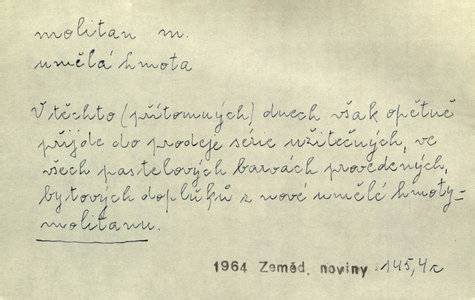 molitan m.
umělá hmota
V těchto (přítomných) dnech však opětně
přijde do prodeje série užitečných, ve
všech pastelových barvách provedených,
bytových doplňků z nové umělé hmoty -
molitanu.
1964 Zeměd. noviny 145,4c